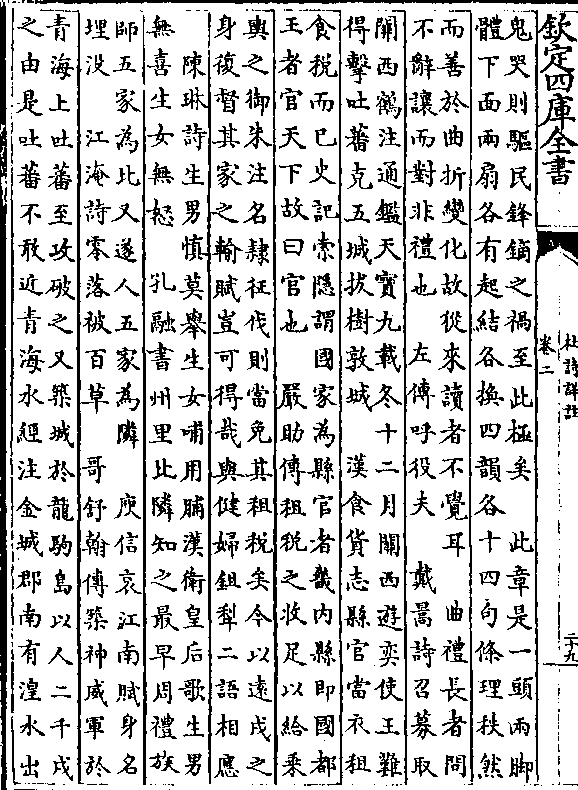 欽定四庫全書
杜詩詳註
卷二
二十九
鬼哭則驅民鋒鏑之禍至此極矣　此章是一頭兩脚
體下面兩扇各有起結各換四韻各十四句條理秩然
而善於曲折變化故從來讀者不覺耳　曲禮長者問
不辭讓而對非禮也　左傳呼役夫　戴暠詩召募取
關西鶴注通鑑天寶九載冬十二月關西遊奕使王難
得擊吐蕃克五城拔樹敦城　漢食貨志縣官當衣租
食税而已史記索隱謂國家為縣官者畿内縣即國都
王者官天下故曰官也　嚴助傳租税之收足以給乘
輿之御朱注名隸征伐則當免其租税矣今以遠戍之
身復督其家之輸賦豈可得哉與健婦鉏犁二語相應
陳琳詩生男慎莫舉生女哺用脯漢衛皇后歌生男
無喜生女無怒　孔融書州里比隣知之最早周禮族
師五家為比又遂人五家為隣　庾信哀江南賦身名
埋没　江淹詩零落被百草　哥舒翰傳築神威軍於
青海上吐蕃至攻破之又築城於龍駒島以人二千戍
之由是吐蕃不敢近青海水經注金城郡南有湟水出